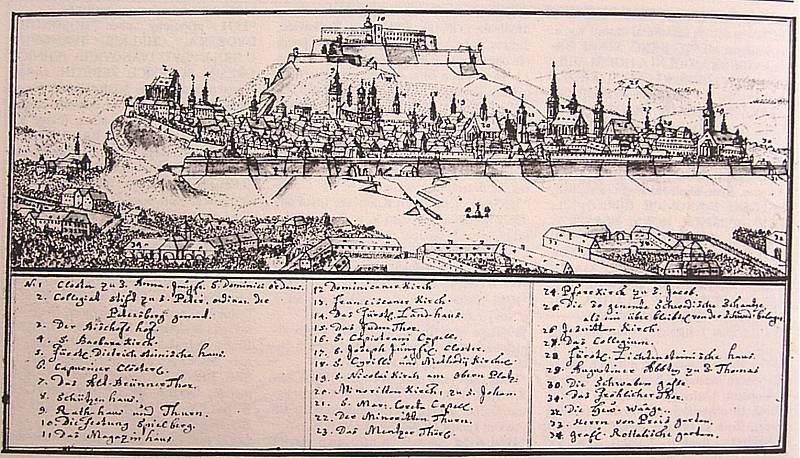 10
N: 1 Closter zu S. Anna. Jungf. S. Dominici ordens.
2. Collegiat Stift zu S. Peter. ordinar. die
Petersberg genent.
3. Der Bischofs hof.
4. S. Barbara Kirch.
5. Fürstl. Dietrichsteinische haus.
6. Capuciner Clösterl.
7. Das Alt Brünner Thor.
8. Schützen haus.
9. Rath haus und Thurn.
10. Die festung Spielberg.
11. Das Magazin haus
12. Dominicaner Kirch
13. Franciscaner Kirch.
14. Das Fürstl. Land-haus.
15. Das Juden Thor.
16. S. Capistrani Capell.
17. S. Joseph Jungfl. Closter.
18. S. Cyrilli und Methudÿ Kirchl.
19. S. Nicolai Kirch am Obern Platz.
20. Minoritten Kirch, zu S. Johan.
21. S. Mar. Loreta Capell.
22. Der Minoritten Thurn.
23. Das Menzer Thürl.
24. Pfarr Kirch zu S. Jacob.
25. Die so genante Schwedische Schantze,
als ein über bleibsl von der
26. Jesuitten Kirch.
27. Das Collegium.
28. Fürstl. Lichtensteinische haus.
29. Augustiner Closter zu S. Thomas
30. Die Schwaben gasse.
31. Das Fröhlicher Thor.
32. Die Waage.
33. Herrn von garten.
34. Grafl. Rottalische garten.